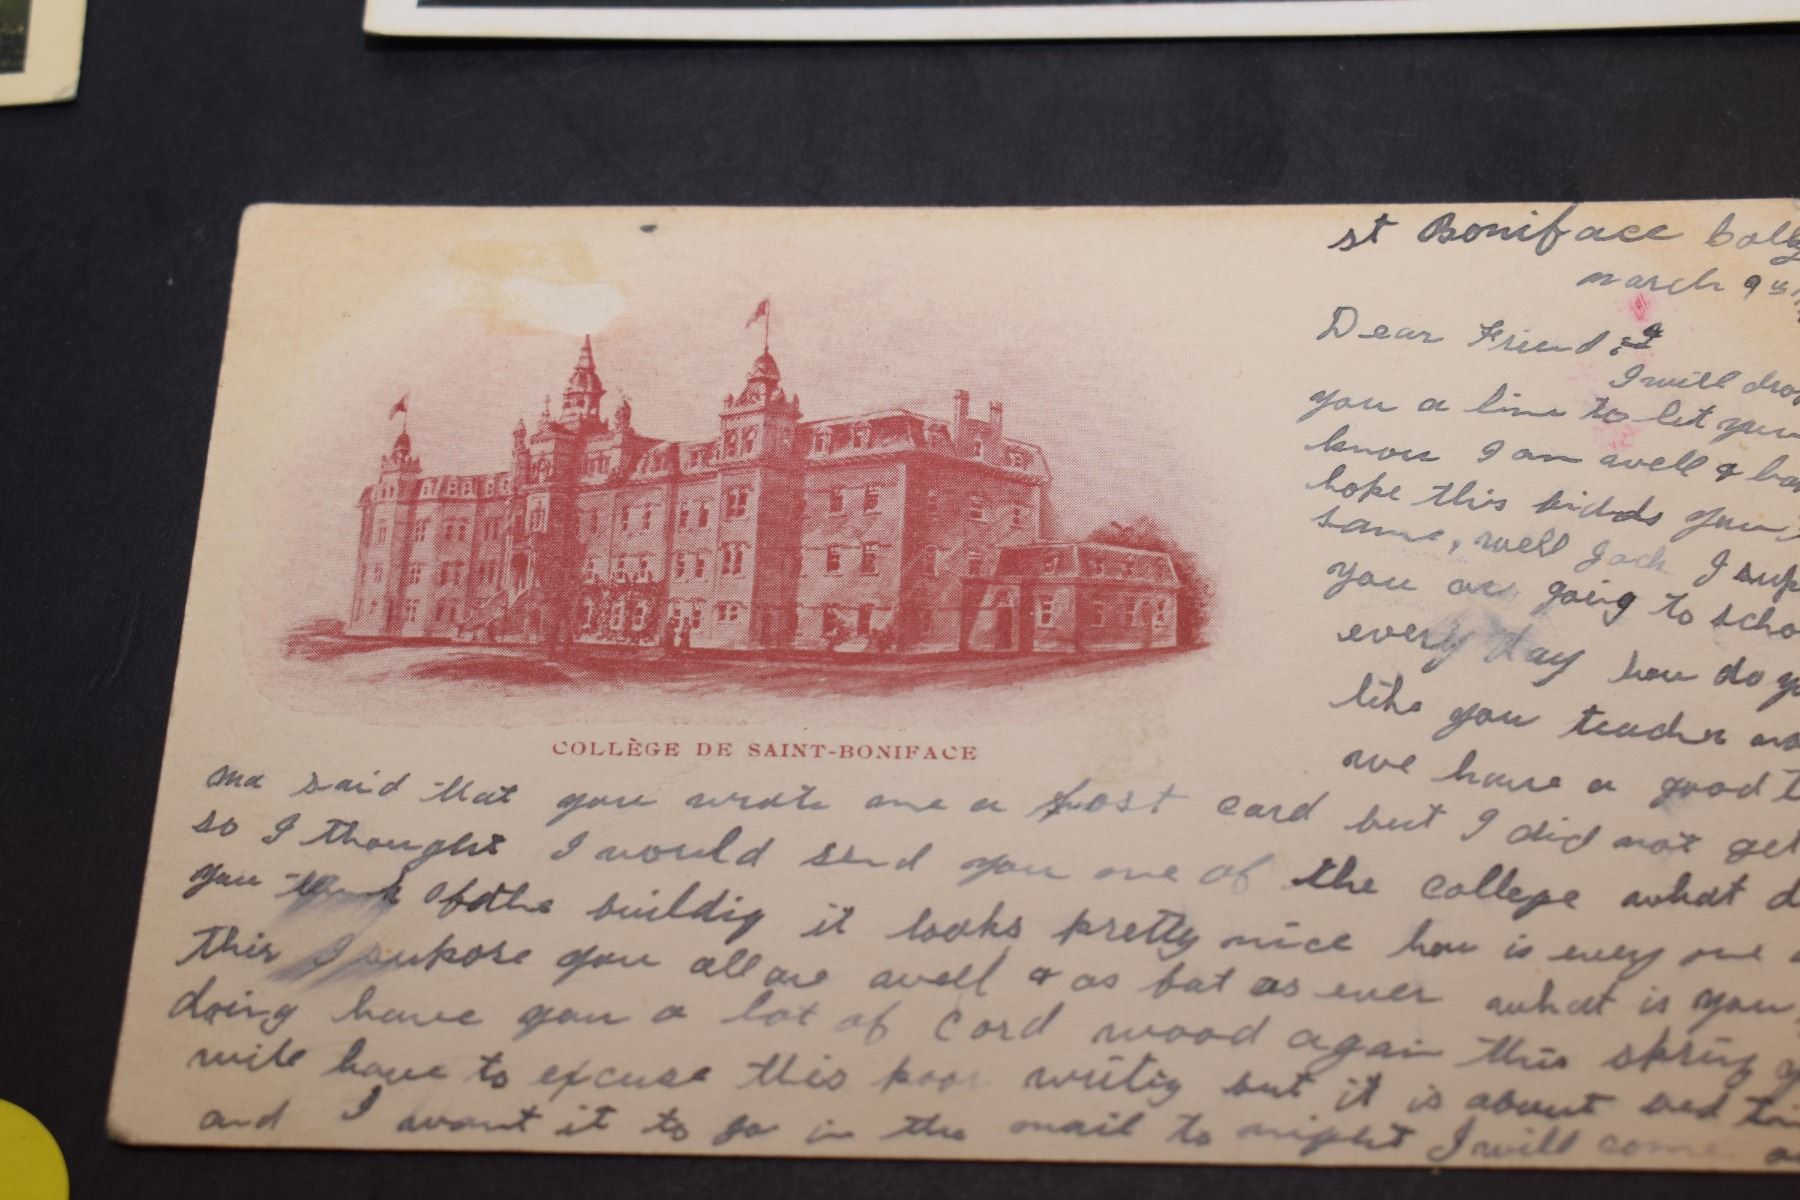 st Boniface
march 9th
Dear Friend
I will drop
you a line to let you
know I am well &
hope this finds you
same, well Jack I sup
you are going to scho
every day how do yo
like you teacher
we have a good t
COLLÈGE DE SAINT-BONIFACE
ma said that you wrote me a post card but I did not get
so I thought I would send you one of the college what d
you think of the buildig it looks pretty nice how is every one
this I supose you all are well & as fat as ever what is you
doing have you a lot of cord wood again this spring
will have to excuse this poor writig but it is about bed tim
and I want it to go in the mail to night I will come